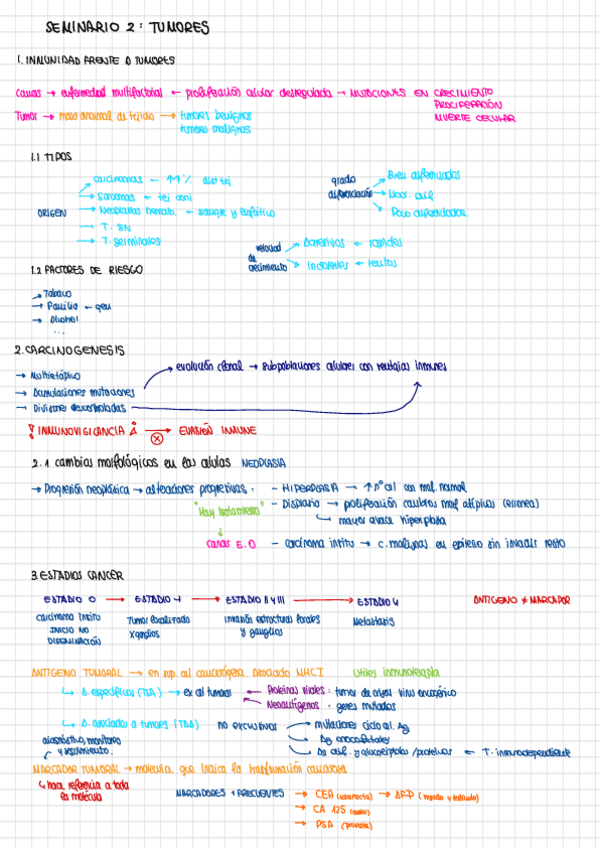 SEMINARIO 2: TUMORES
1. INMUNIDAD FRENTE A TUMORES
Cancer → enfermedad multifactorial ← proliferación celular desregulada → MUTACIONES EN CRECIMIENTO
PROLIFERACIÓN
MUERTE CELULAR
Tumor → masa anormal de tejido → tumores benignos
tumores malignos
1.1 TIPOS
ORIGEN
carcinomas ← ↑↑%
Sarcomas ← tej conj
Neoplasias hemato. ← sangre y linfático
T. SN
T. germinales
grado
diferenciación
Bien diferenciados
Mod. dif
Poco diferenciados
velocidad
de
crecimiento
Agresivos ← rápidos
Indolentes ← lentos
1.2 FACTORES DE RIESGO
→ Tabaco
→ Familia ← gen
→ Alcohol
...
2. CARCINOGENESIS
→ Multietápico
→ Acumulaciones mutaciones
→ Divisiones descontroladas
evolución clonal → subpoblaciones celulares con ventajas inmunes
INMUNOVIGILANCIA → EVASIÓN INMUNE
2.1 cambios morfológicos en las células NEOPLASIA
→ Progresión neoplásica → alteraciones progresivas:
- HIPERPLASIA → ↑ nº cel con mof. normal
"Hay tratamiento" - Displasia → proliferación cambios mof atípicos (erronea)
mayor avance hiperplasia
CANCER E.0 - carcinoma insitu → c. malignas en epitelio sin invadir resto
3. ESTADIOS CANCER
ESTADIO 0 → ESTADIO I → ESTADIO II y III → ESTADIO IV
ANTIGENO ≠ MARCADOR
Carcinoma Insitu
INICIO NO
DISEMINACIÓN
Tumor localizado
X ganglios
Invasión estructuras locales
y ganglios
Metástasis
ANTIGENO TUMORAL → en sup. cel cancerígena. Asociado MHC I Utiles inmunoterapia
A. específicos (TSA) → ex cel tumoral
Proteinas virales: tumor de origen virus oncogénico
Neoantígenos: genes mutados
A. asociados a tumores (TAA) no exclusivos
mutaciones ciclo cel. Ag
Ag oncofetales
Ag dif. y glucolipidos / proteínas ← T. inmunodependiente
diagnóstico, monitoreo
y seguimiento.
MARCADOR TUMORAL → molécula que indica la transformación cancerosa
hace referencia a toda
la molécula
MARCADORES + FRECUENTES → CEA (colorrecto) → AFP (hígado y testículo)
→ CA 125 (ovario)
→ PSA (próstata)